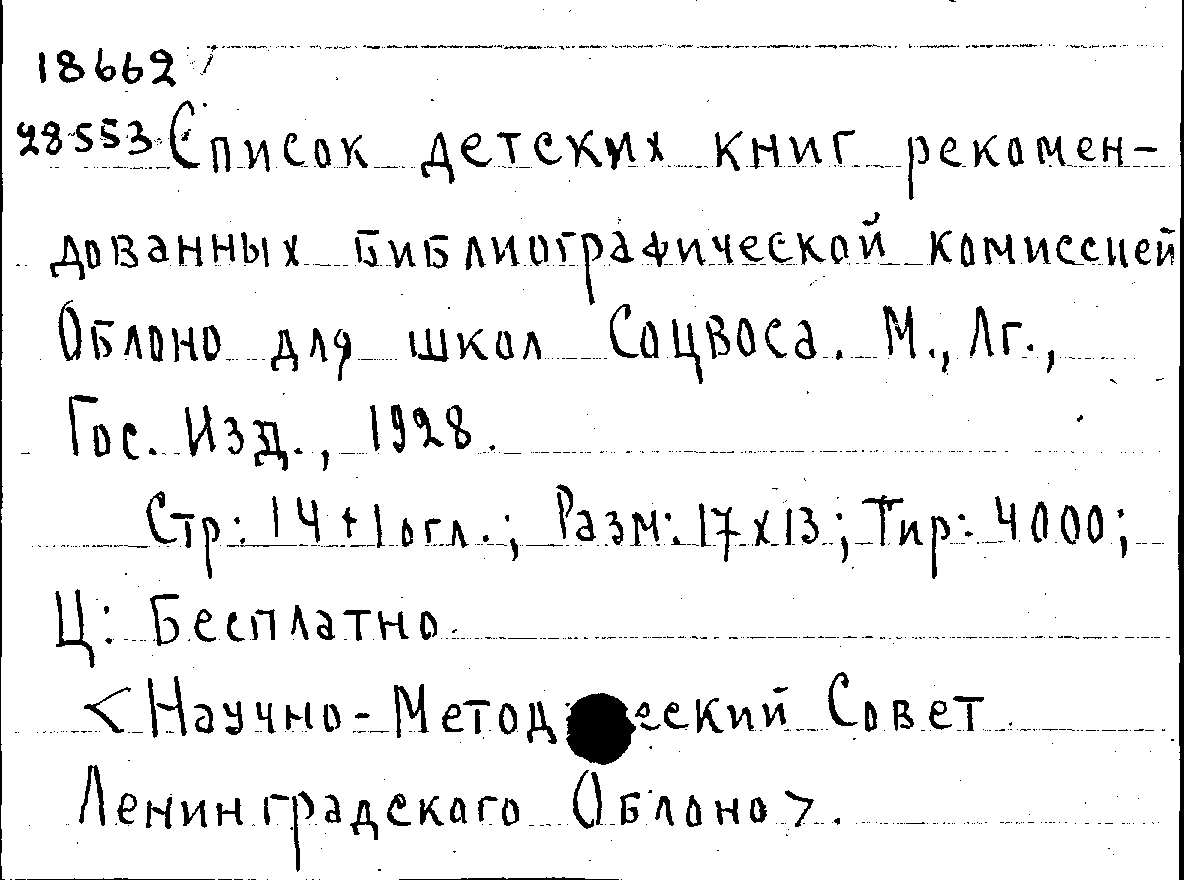 18662
28553 Список детских книг рекомен-
дованных библиографической комиссией
Облоно для школ Соцвоса. М., Лг.,
Гос. Изд., 1928.
Стр: 14+1 огл.; Разм: 17x13; Тир: 4000;
Ц: Бесплатно.
<Научно- Совет
Ленинградского Облоно>.